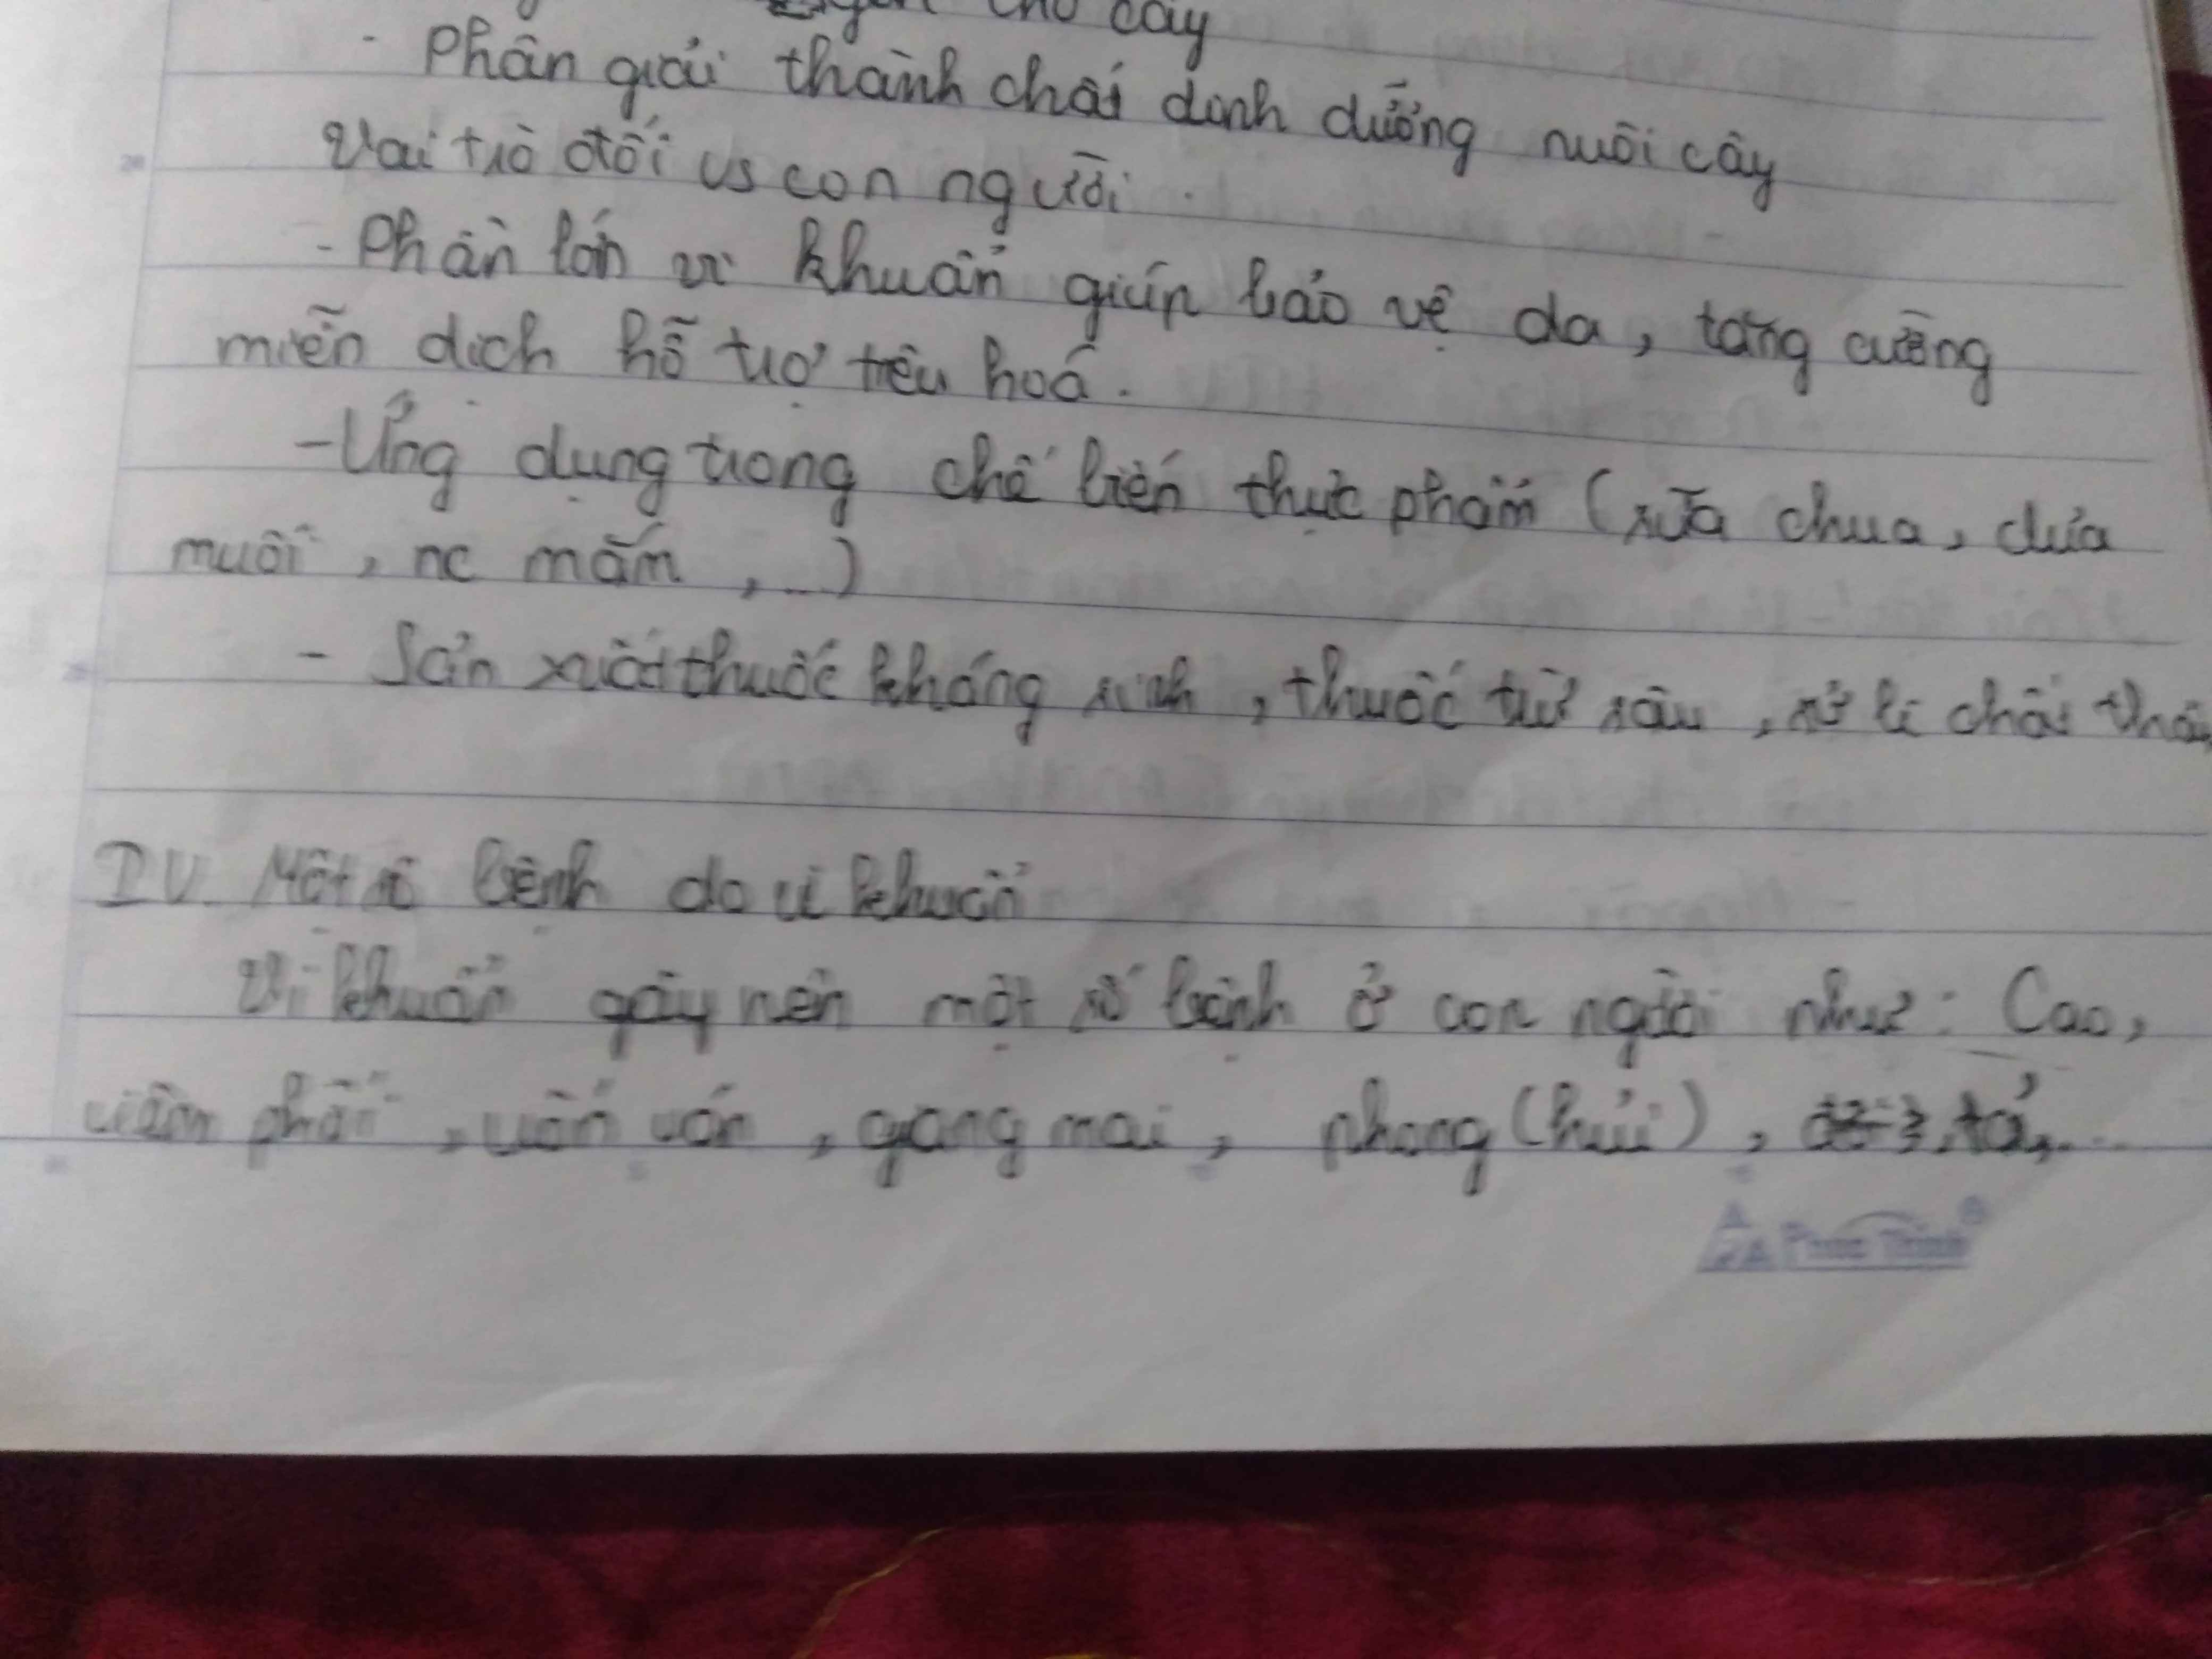 cho cây
- Phân giải thành chất dinh dưỡng nuôi cây
Vai trò đối vs con người.
- Phần lớn vi khuẩn giúp bảo vệ da, tăng cường
miễn dịch hỗ trợ tiêu hoá.
- Ứng dụng trong chế biến thực phẩm (sữa chua, dưa
muối, nc mắm, ...)
- Sản xuất thuốc kháng sinh, thuốc trừ sâu, xử lí chất
IV. Một số bệnh do vi khuẩn
Vi khuẩn gây nên một số bệnh ở con người như: Lao,
viêm phổi, uốn ván, giang mai, phong (hủi), tả, ...